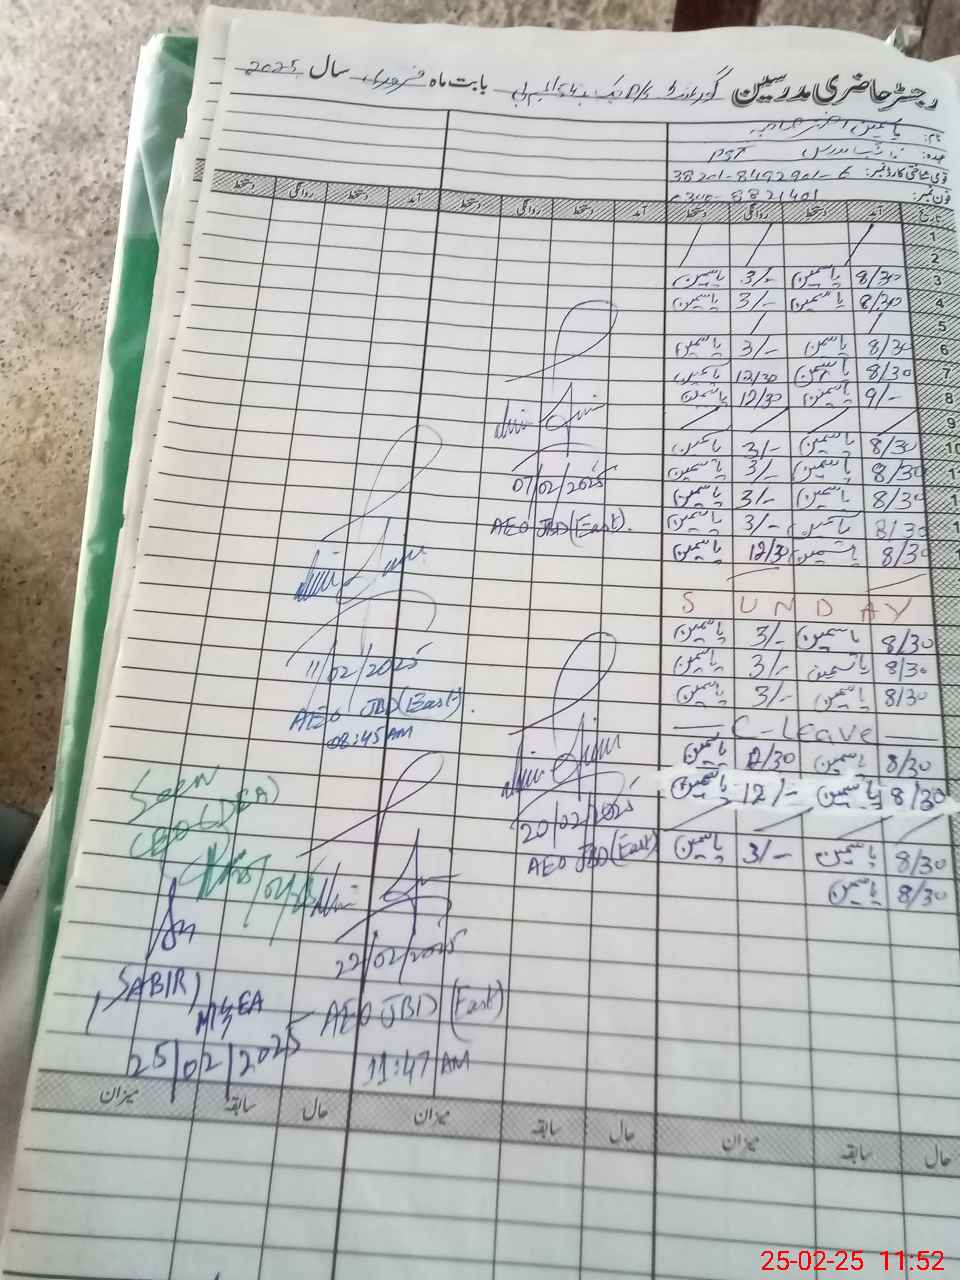 رجسٹر حاضری مدرسین گورنمنٹ بابت ماہ فروری سال 2025
نام: یاسمین اختر صاحبہ
عہدہ: نائب مدرس PST
قومی شناختی کارڈ نمبر: 38201-8492901-6
فون نمبر: 8821401
تاریخ آمد دستخط روانگی دستخط آمد دستخط روانگی دستخط دستخط روانگی دستخط
1
2
3 8/30 یاسمین 3/- یاسمین
4 8/30 یاسمین 3/- یاسمین
5
6 8/30 یاسمین 3/- یاسمین
7 8/30 یاسمین 12/30 یاسمین
8 9/- یاسمین 12/30 یاسمین
9
10 8/30 یاسمین 3/- یاسمین
8/30 یاسمین 3/- یاسمین
8/30 یاسمین 3/- یاسمین
8/30 یاسمین 3/- یاسمین
8/30 یاسمین 12/30 یاسمین
SUNDAY
8/30 یاسمین 3/- یاسمین
8/30 یاسمین 3/- یاسمین
8/30 یاسمین 3/- یاسمین
C-Leave
8/30 یاسمین 12/30 یاسمین
8/30 یاسمین 12/- یاسمین
8/30 یاسمین 3/- یاسمین
8/30 یاسمین
07/02/2025
AEO JBD (East).
11/02/2025
AEO JBD (East).
08:45 AM
20/02/2025
AEO JBD (East)
22/02/2025
AEO JBD (East)
11:47 AM
Seen
CEO (DEA)
SABIR
MEA
25/02/2025
حال سابقہ میزان حال سابقہ میزان حال سابقہ میزان
25-02-25 11:52